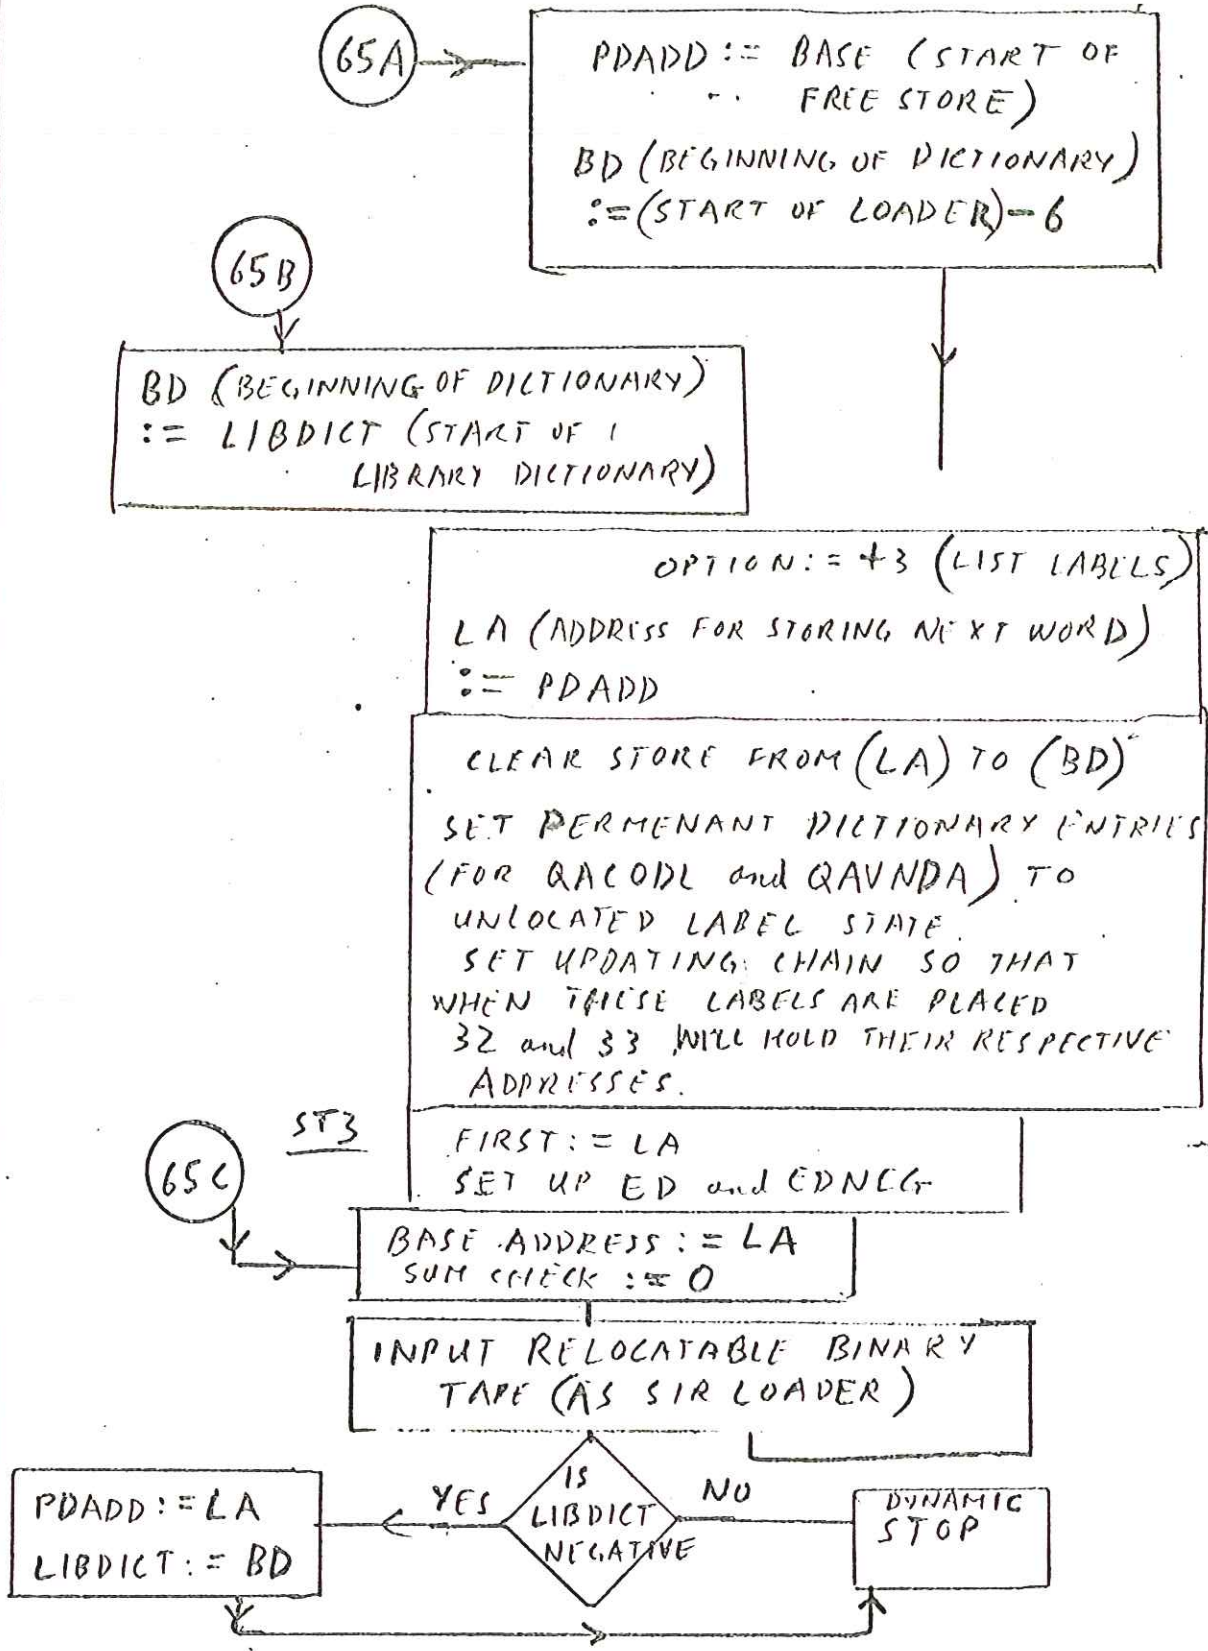 65A
PDADD := BASE (START OF
FREE STORE)
BD (BEGINNING OF DICTIONARY)
:= (START OF LOADER) - 6
65B
BD (BEGINNING OF DICTIONARY)
:= LIBDICT (START OF
LIBRARY DICTIONARY)
OPTION := +3 (LIST LABELS)
LA (ADDRESS FOR STORING NEXT WORD)
:= PDADD
CLEAR STORE FROM (LA) TO (BD)
SET PERMENANT DICTIONARY ENTRIES
(FOR QACODL and QAVNDA) TO
UNLOCATED LABEL STATE.
SET UPDATING CHAIN SO THAT
WHEN THESE LABELS ARE PLACED
32 and 33 WILL HOLD THEIR RESPECTIVE
ADDRESSES.
ST3
65C
FIRST := LA
SET UP ED and EDNEG
BASE ADDRESS := LA
SUM CHECK := 0
INPUT RELOCATABLE BINARY
TAPE (AS SIR LOADER)
IS
LIBDICT
NEGATIVE
YES
NO
PDADD := LA
LIBDICT := BD
DYNAMIC
STOP